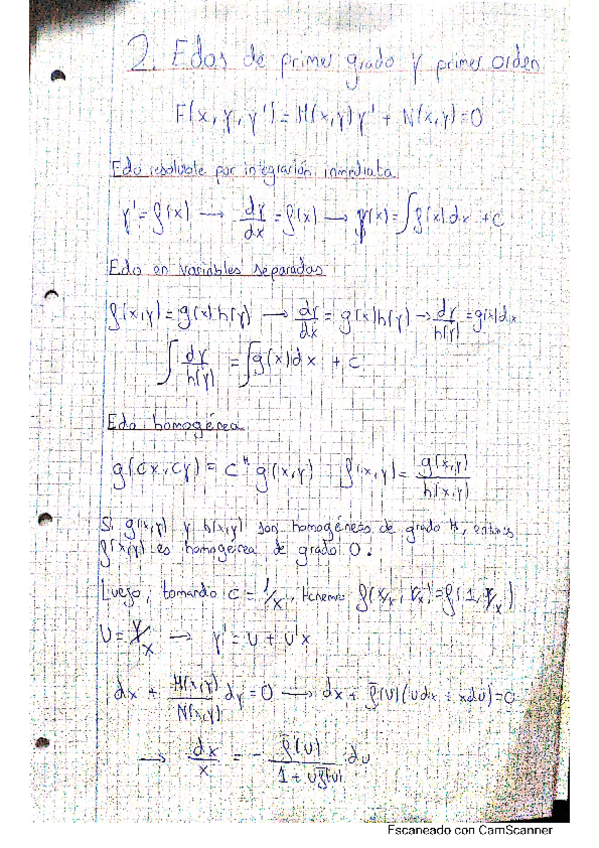 2. Edos de primer grado y primer orden
F(x, y, y') = M(x,y) y' + N(x,y) = 0
Edo resoluble por integración inmediata
y' = f(x) → dy/dx = f(x) → y(x) = ∫f(x)dx + c
Edo en variables separadas
f(x,y) = g(x)h(y) → dy/dx = g(x)h(y) → dy/h(y) = g(x)dx
∫ dy/h(y) = ∫g(x)dx + c
Edo homogénea
g(cx, cy) = c^M g(x,y) f(x,y) = g(x,y)/h(x,y)
Si g(x,y) y h(x,y) son homogéneas de grado M, entonces
f(x,y) es homogénea de grado 0.
Luego, tomando c = 1/x, tenemos f(x/x, y/x) = f(1, y/x)
U = y/x → y' = U + U'x
dx + M(x,y)/N(x,y) dy = 0 → dx + f(U)(Udx + xdU) = 0
→ dx/x = - f(U)/(1 + Uf(U)) dU
Escaneado con CamScanner